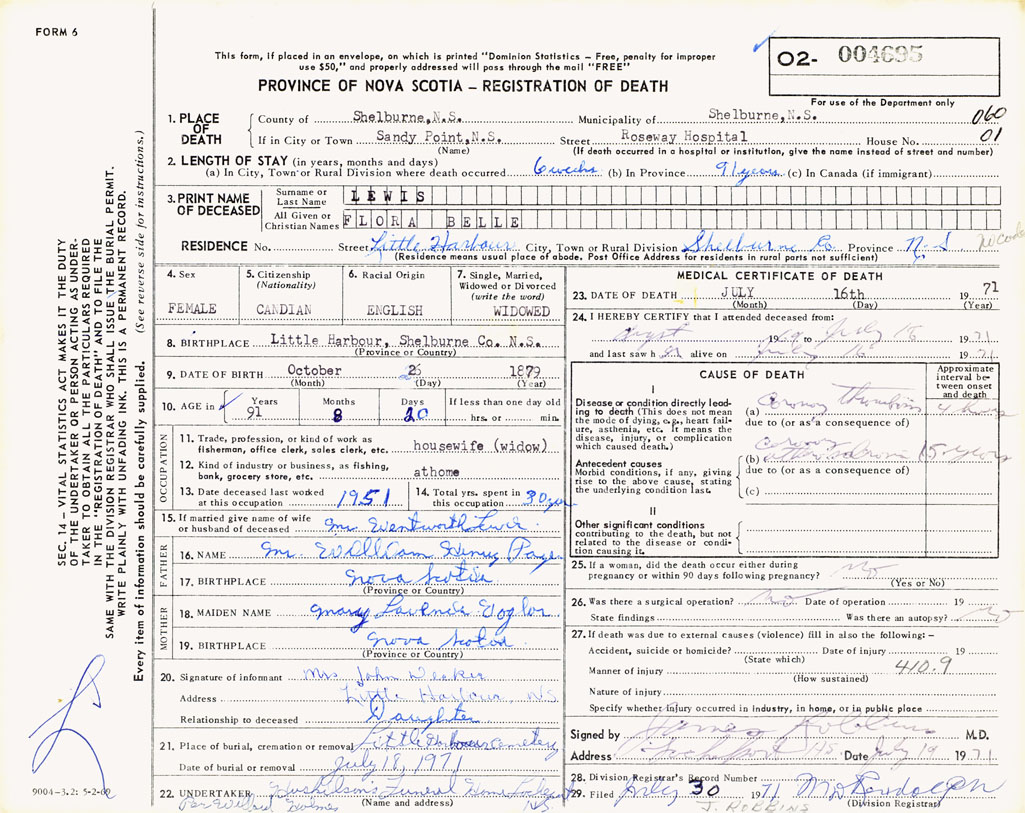 FORM 6
This form, if placed in an envelope, on which is printed "Dominion Statistics – Free, penalty for improper
use $50," and properly addressed will pass through the mail "FREE"
PROVINCE OF NOVA SCOTIA – REGISTRATION OF DEATH
O2- 004695
For use of the Department only
1. PLACE OF DEATH
County of Shelburne,N.S. Municipality of Shelburne,N.S. 060
If in City or Town Sandy Point,N.S. Street Roseway Hospital House No. 01
(Name) (If death occurred in a hospital or institution, give the name instead of street and number)
2. LENGTH OF STAY (in years, months and days)
(a) In City, Town or Rural Division where death occurred 6 weeks (b) In Province 91 years (c) In Canada (if immigrant)
3. PRINT NAME OF DECEASED
Surname or Last Name LEWIS
All Given or Christian Names FLORA BELLE
RESIDENCE No. Street Little Harbour City, Town or Rural Division Shelburne Co. Province N.S no code
(Residence means usual place of abode. Post Office Address for residents in rural parts not sufficient)
4. Sex
FEMALE
5. Citizenship (Nationality)
CANDIAN
6. Racial Origin
ENGLISH
7. Single, Married, Widowed or Divorced (write the word)
WIDOWED
8. BIRTHPLACE Little Harbour, Shelburne Co. N.S.
(Province or Country)
9. DATE OF BIRTH October 26 1879
(Month) (Day) (Year)
10. AGE in Years 91 Months 8 Days 20 If less than one day old hrs. or min.
OCCUPATION
11. Trade, profession, or kind of work as fisherman, office clerk, sales clerk, etc. housewife (widow)
12. Kind of industry or business, as fishing, bank, grocery store, etc. athome
13. Date deceased last worked at this occupation 1951
14. Total yrs. spent in this occupation 30 yrs
15. If married give name of wife or husband of deceased Mr. Wentworth Lewis
FATHER
16. NAME Mr. William Henry Page
17. BIRTHPLACE Nova Scotia
(Province or Country)
MOTHER
18. MAIDEN NAME Mary
19. BIRTHPLACE Nova Scotia
(Province or Country)
20. Signature of informant Mrs John
Address Little Harbour, NS
Relationship to deceased Daughter
21. Place of burial, cremation or removal Little Harbour Cemetery
Date of burial or removal July 18, 1971
22. UNDERTAKER Funeral Home N.S.
(Name and address)
Per Willard Holmes
MEDICAL CERTIFICATE OF DEATH
23. DATE OF DEATH JULY 16th 1971
(Month) (Day) (Year)
24. I HEREBY CERTIFY that I attended deceased from:
19 to July 16 1971
and last saw h er alive on July 16 1971
CAUSE OF DEATH
Approximate interval between onset and death
I
Disease or condition directly leading to death (This does not mean the mode of dying, e.g., heart failure, asthenia, etc. It means the disease, injury, or complication which caused death.)
(a) Coronary Thrombosis 4 hours
due to (or as a consequence of)
Antecedent causes
Morbid conditions, if any, giving rise to the above cause, stating the underlying condition last.
(b) coronary 15 years
due to (or as a consequence of)
(c)
II
Other significant conditions contributing to the death, but not related to the disease or condition causing it.
25. If a woman, did the death occur either during pregnancy or within 90 days following pregnancy? No
(Yes or No)
26. Was there a surgical operation? No Date of operation 19
State findings Was there an autopsy? No
27. If death was due to external causes (violence) fill in also the following: –
Accident, suicide or homicide? Date of injury 19
(State which)
Manner of injury 410.9
(How sustained)
Nature of injury
Specify whether injury occurred in industry, in home, or in public place
Signed by James Robbins M.D.
Address Lockeport NS Date July 19 1971
28. Division Registrar's Record Number
29. Filed July 30 1971
(Division Registrar)
J. ROBBINS
9004-3.2: 5-2-69
SEC. 14 – VITAL STATISTICS ACT MAKES IT THE DUTY
OF THE UNDERTAKER OR PERSON ACTING AS UNDER-
TAKER TO OBTAIN ALL THE PARTICULARS REQUIRED
IN THE "REGISTRATION OF DEATH" AND TO FILE THE
SAME WITH THE DIVISION REGISTRAR WHO SHALL ISSUE THE BURIAL PERMIT.
WRITE PLAINLY WITH UNFADING INK. THIS IS A PERMANENT RECORD.
Every item of information should be carefully supplied. (See reverse side for instructions.)